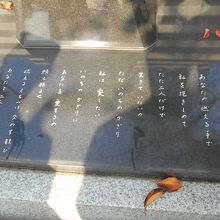 あなたの燃える手で
私を抱きしめて
ただ二人だけで
生きていたいの
ただいのちのかぎり
私は愛したい
いのちのかぎりに
あなたを愛するの
頬と頬よせ
燃えるくちづけ交わすよろこび
あなたと二人で